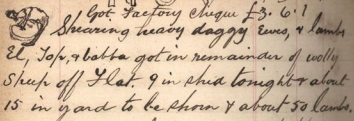 Got Factory cheque £3.6.1
Shearing heavy daggy Ewes, & lambs
El, Top, & babba got in remainder of wolly
sheep off Flat. 9 in shed tonight & about
15 in yard to be shorn & about 50 lambs.